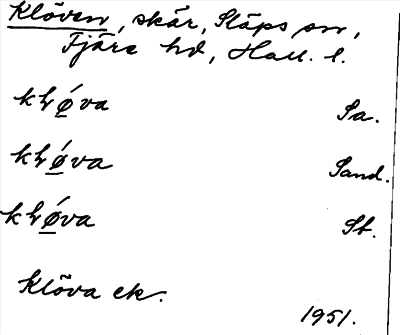 Klöven, skär, Släps sn,
Fjäre hd, Hall. l.
kłǿ̲va Sa.
kłǿ̲va Sand.
kłǿ̲va St.
Klöva ek.
1951.